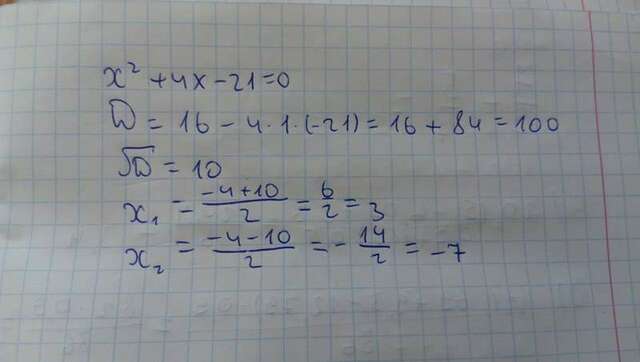 x² + 4x - 21 = 0
D = 16 - 4 · 1 · (-21) = 16 + 84 = 100
√D = 10
x₁ = (-4+10)/2 = 6/2 = 3
x₂ = (-4-10)/2 = -14/2 = -7